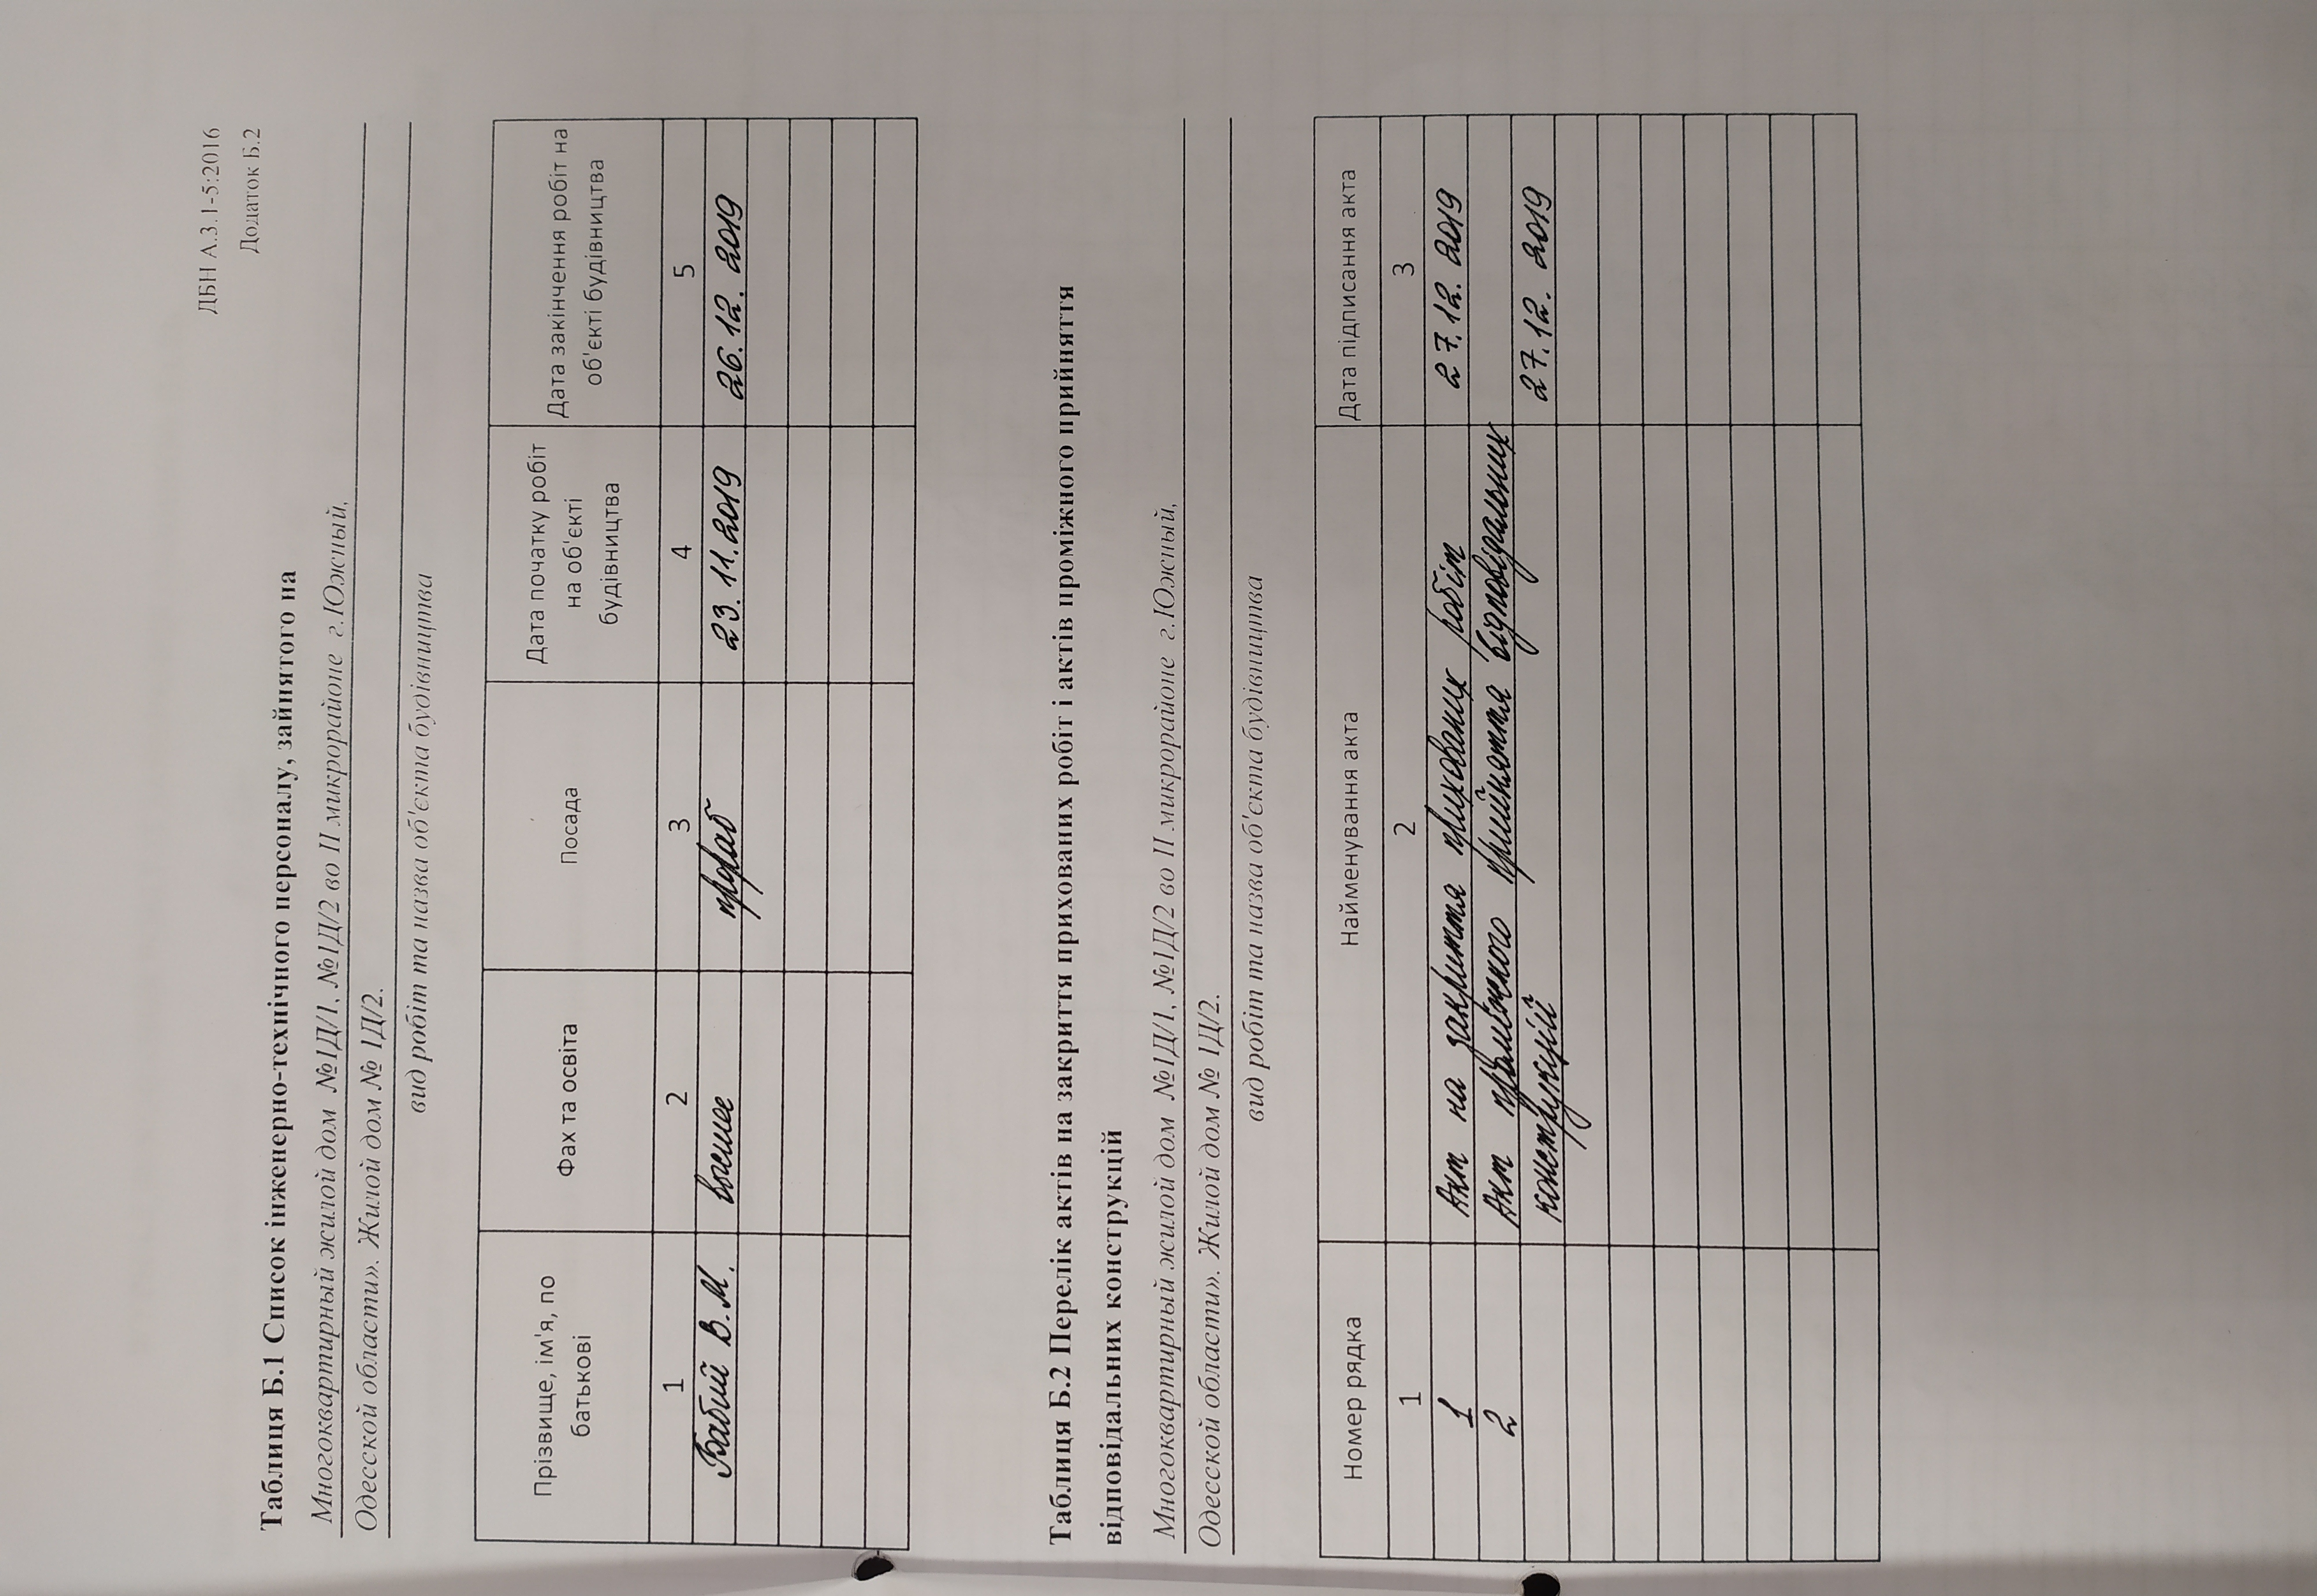 ДБН А.3.1-5:2016
Додаток Б.2
Таблиця Б.1 Список інженерно-технічного персоналу, зайнятого на
Многоквартирный жилой дом №1Д/1, №1Д/2 во II микрорайоне г.Южный,
Одесской области». Жилой дом № 1Д/2.
вид робіт та назва об'єкта будівництва
Прізвище, ім'я, по батькові | Фах та освіта | Посада | Дата початку робіт на об'єкті будівництва | Дата закінчення робіт на об'єкті будівництва
1 2 3 4 5
Бабий В.М. высшее прораб 23.11.2019 26.12.2019
Таблиця Б.2 Перелік актів на закриття прихованих робіт і актів проміжного прийняття
відповідальних конструкцій
Многоквартирный жилой дом №1Д/1, №1Д/2 во II микрорайоне г.Южный,
Одесской области». Жилой дом № 1Д/2.
вид робіт та назва об'єкта будівництва
Номер рядка | Найменування акта | Дата підписання акта
1 2 3
1 Акт на закриття прихованих робіт 27.12.2019
2 Акт проміжного прийняття відповідальних
конструкцій 27.12.2019